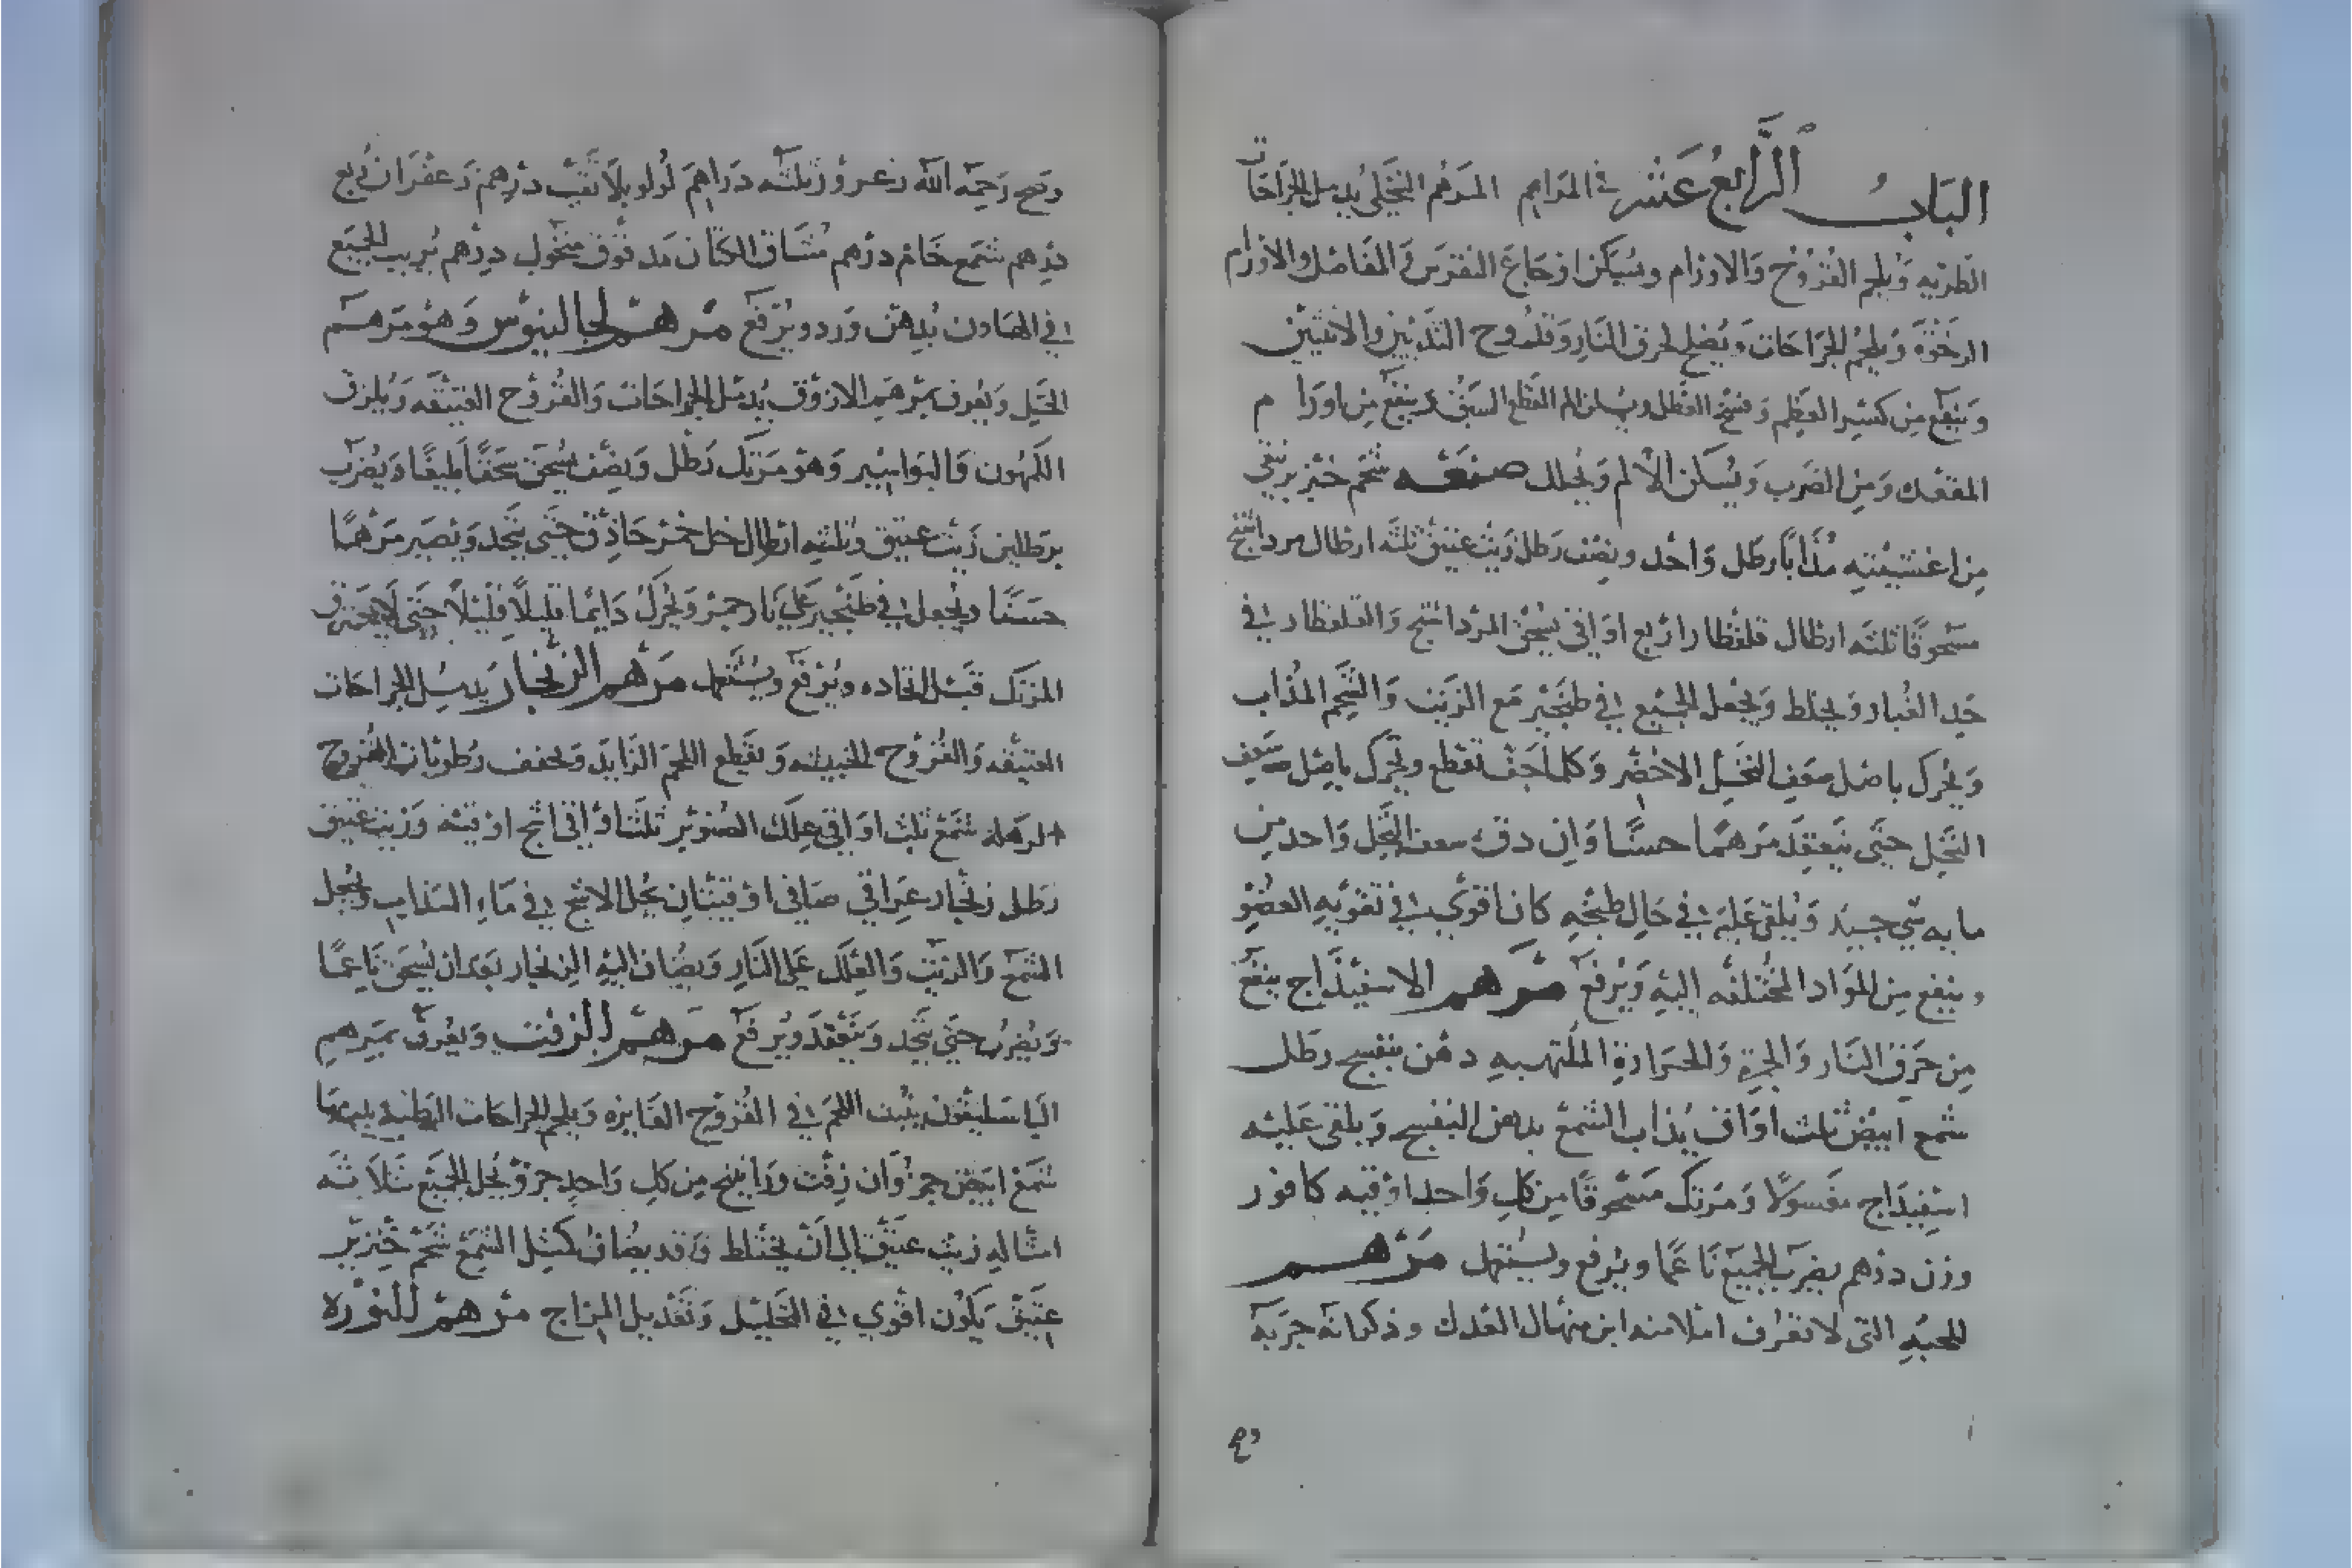 الباب الرابع عشر في المراهم المرهم النخلي يدمل الجراحات
الطريه ويلحم القروح والاورام ويسكن اوجاع النقرس والمفاصل والاورام
الرخوة ويلحم الجراحات ويصلح لحرق النار وقروح الثديين والانثيين
وينفع من كسر العظم وفسخ العضل ويسكن الم القطع وينفع من اورام
المقعده ومن الضرب ويسكن الالم ويحلل صنعه شحم خنزير نقي
من اغشيته مذابا رطل واحد ونصف رطل زيت عتيق ثلثه ارطال مرداسنج
مسحوقا ثلثه ارطال قلقطار اربع اواقي يسحق المرداسنج والقلقطار في
حد الغبار ويخلط ويجعل الجميع في طنجير مع الزيت والشحم المذاب
ويحرك باصل سعف النخل الاخضر وكلما جف تقطع ويحرك باصل سعف
النخل حتى ينعقد مرهما حسنا وان دق سعف النخل واحد من
مايه شي جيد ويلقى عليه في حال طبخه كان اقوى في تقويه العضو
وينفع من المواد المختلفه اليه ويرفع مرهم الاسفيذاج ينفع
من حرق النار والجمرة والحرارة الملتهبه دهن بنفسج رطل
شمع ابيض ثلث اواق يذاب الشمع بدهن البنفسج ويلقى عليه
اسفيذاج مغسولا ومرتك مسحوقا من كل واحد اوقيه كافور
وزن درهم يضرب الجميع ناعما ويرفع ويستعمل مرهم
للحبه التي لا تعرف املا منه ابن منهال العدل وذكر انه جربه
وصح رحمه الله ثلثه دراهم لولو بلا ثقب درهم زعفران ربع
درهم شمع خام درهم مشاق الكتان مدقوق منخول درهم يربب الجميع
في الهاون بدهن ورد ويرفع مرهم لجالينوس وهو مرهم
الخل ويعرف بمرهم الازرق يدمل الجراحات والقروح العتيقه ويلزق
الكهون والبواسير وهو مرتك رطل ونصف يسحق سحقا بليغا ويضرب
برطلين زيت عتيق وثلثه ارطال خل خمر حاذق حتى يتحد ويصير مرهما
حسنا ويجعل في طنجير على نار جمر ويحرك دايما قليلا قليلا حتى لا يحترق
المرتك قبل اتحاده ويرفع ويستعمل مرهم الزنجار يدمل الجراحات
العتيقه والقروح الخبيثه ويقطع اللحم الزايد ويجفف رطوبات القروح
الرهله شمع ثلث اواقي علك الصنوبر ثلث اواقي اشج اوقيه وزيت عتيق
رطل زنجار عراقي صافي اوقيتان يحل الاشج في ماء السذاب ويحل
الشمع والزيت والعلك على النار ويضاف اليه الزنجار بعد ان يسحق ناعما
ويضرب حتى يتحد وينعقد ويرفع مرهم الزفت ويعرف بمرهم
الباسليقون ينبت اللحم في القروح الغايره ويلحم الجراحات الرطبه
شمع ابيض جزوان زفت وراتينج من كل واحد جزو يحل الجميع بثلاثه
امثاله زيت عتيق الى ان يختلط وقد يضاف كمثل الشمع شحم خنزير
عتيق يكون اقوي في التحليل وتعديل المزاج مرهم للنوره